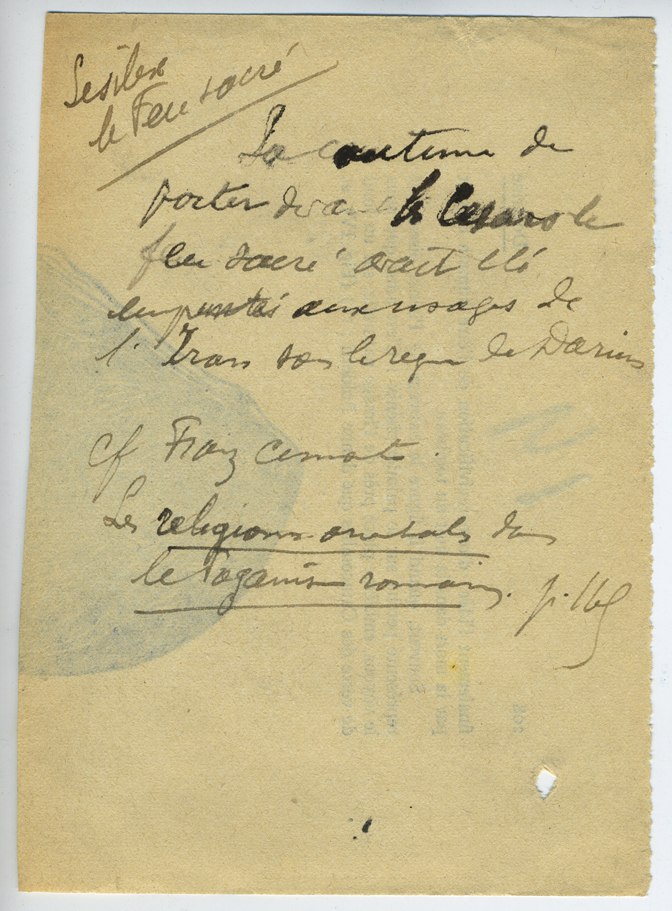 le Feu sacré
La coutume de
porter devant les Césars le
feu sacré avait été
empuntés aux usages de
l'Iran sous le règne de Darius
cf Franz Cumont.
Les religions orientales dans
le Paganisme romain. p.